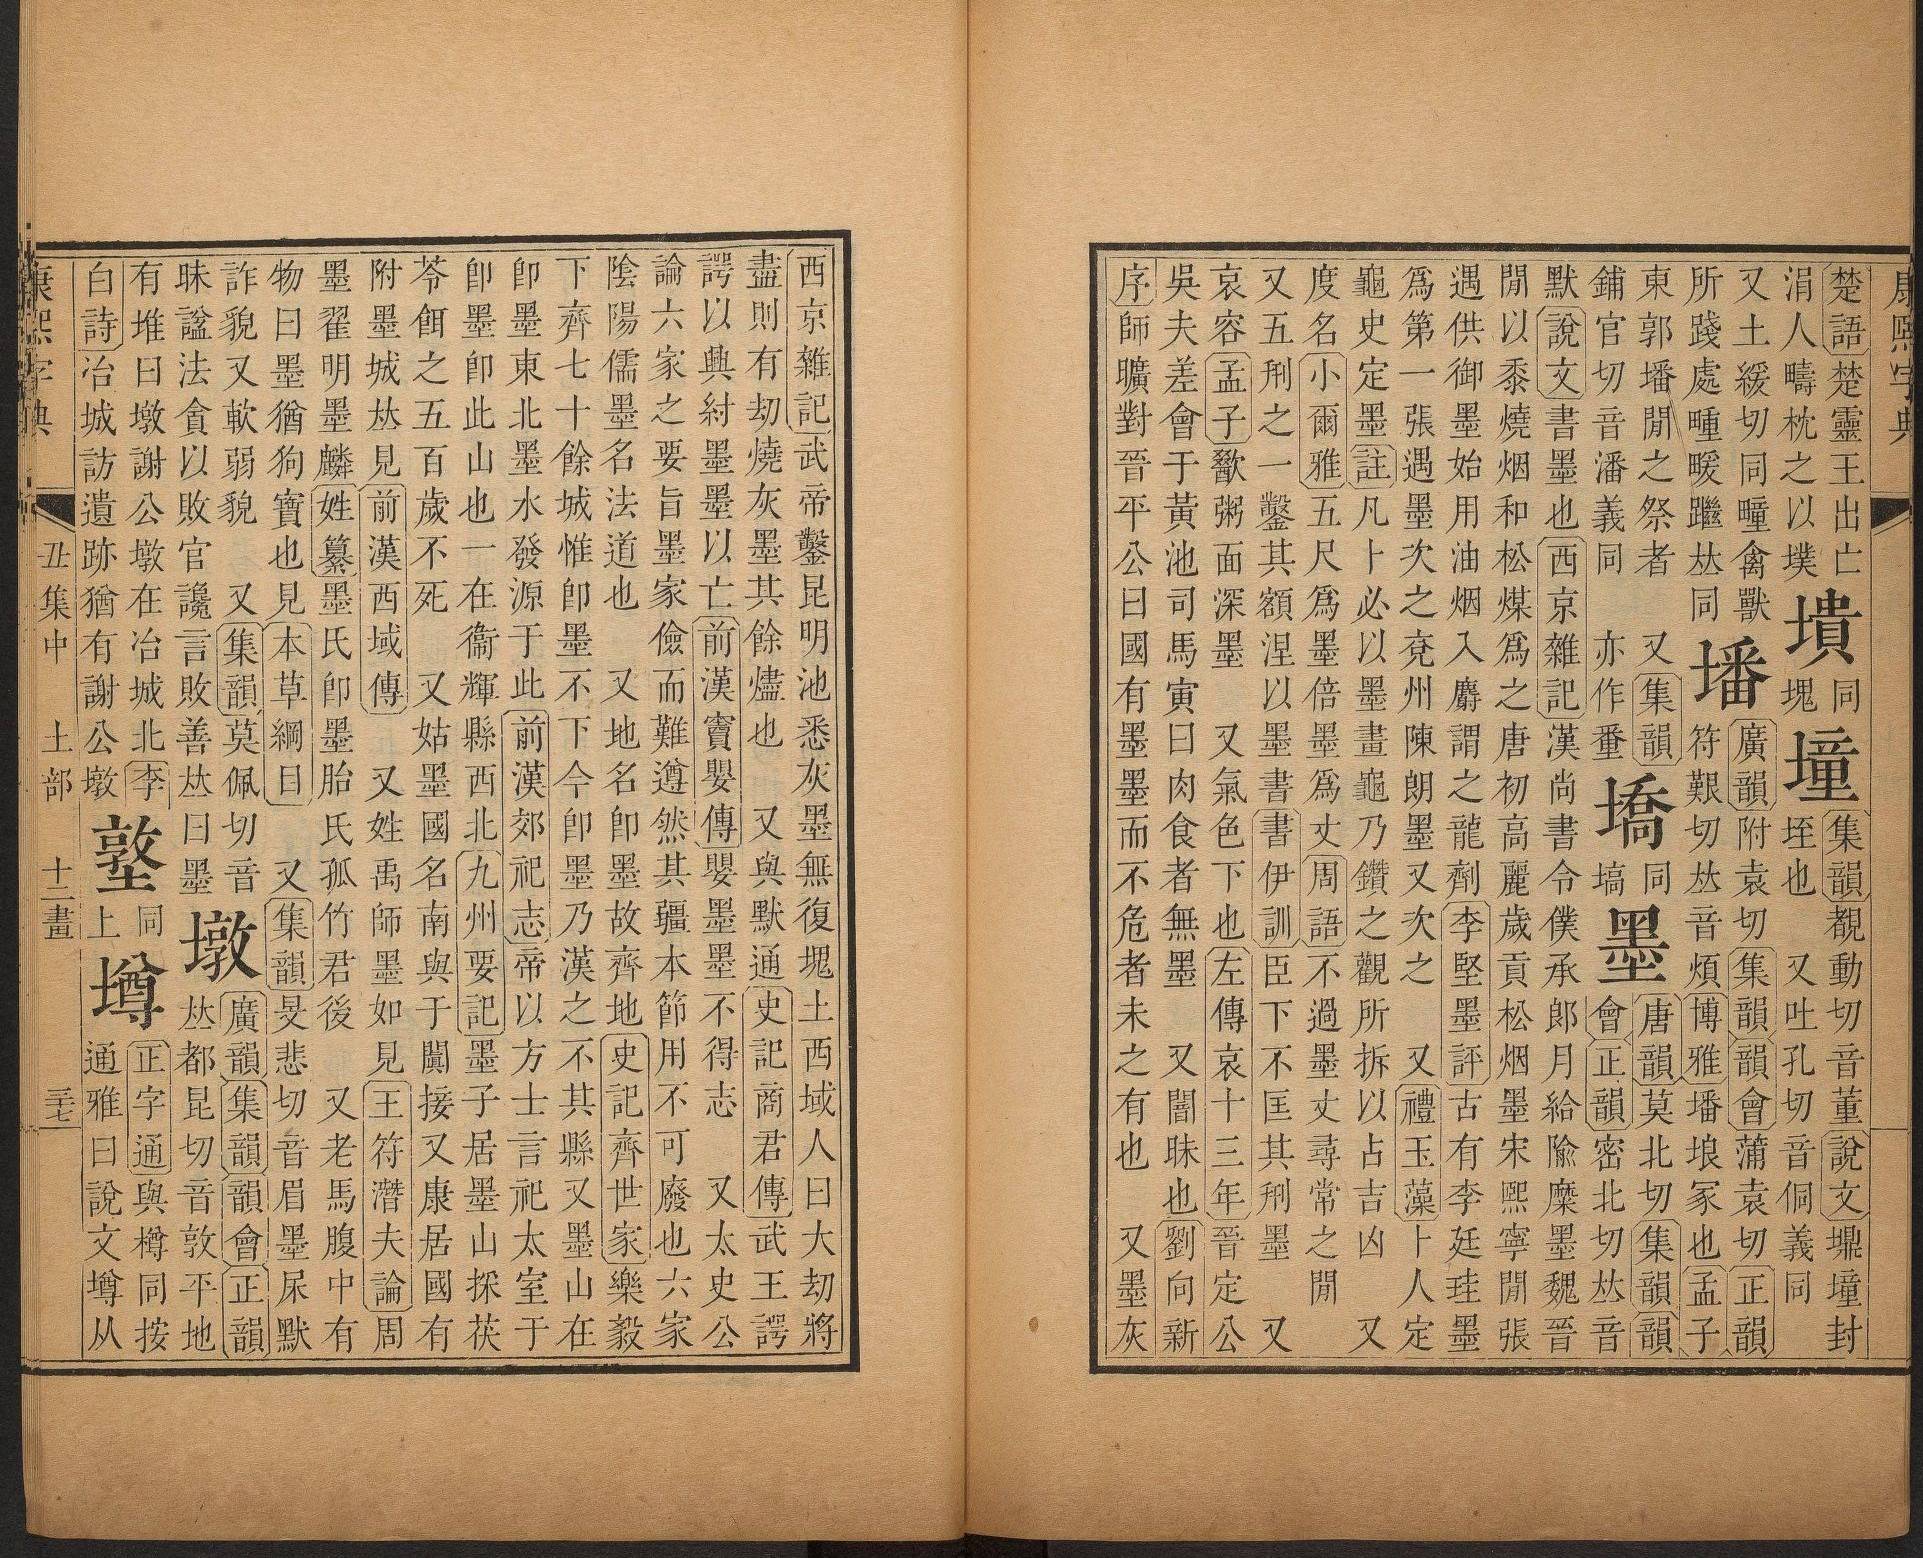 康熙字典
楚語楚靈王出亡墤同墥集韻覩動切音董說文墥封
涓人疇枕之以墣塊垤也 又吐孔切音侗義同
又土緩切同疃禽獸墦廣韻附袁切集韻韻會蒲袁切正韻
所踐處畽暖躖𠀤同符艱切𠀤音煩博雅墦埌冢也孟子
東郭墦閒之祭者 又集韻墧同墨唐韻莫北切集韻韻
鋪官切音潘義同 亦作塙會正韻密北切𠀤音
默說文書墨也西京雜記漢尚書令僕承郞月給隃糜墨魏晉
閒以黍燒烟和松煤爲之唐初高麗歲貢松烟墨宋熙寧閒張
遇供御墨始用油烟入麝謂之龍劑李堅墨評古有李廷珪墨
爲第一張遇墨次之兗州陳朗墨又次之 又禮玉藻卜人定
龜史定墨註凡卜必以墨畫龜乃鑽之觀所拆以占吉凶 又
度名小爾雅五尺爲墨倍墨爲丈周語不過墨丈尋常之閒
又五𠛬之一鑿其額涅以墨書書伊訓臣下不匡其𠛬墨 又
哀容孟子歠粥面深墨 又氣色下也左傳哀十三年晉定公
吳夫差會于黃池司馬寅曰肉食者無墨 又闇昧也劉向新
序師曠對晉平公曰國有墨墨而不危者未之有也 又墨灰
西京雜記武帝鑿昆明池悉灰墨無復塊土西域人曰大劫將
盡則有劫燒灰墨其餘燼也 又與默通史記商君傳武王諤
諤以興紂墨墨以亡前漢竇嬰傳嬰墨墨不得志 又太史公
論六家之要旨墨家儉而難遵然其疆本節用不可廢也六家
陰陽儒墨名法道也 又地名卽墨故齊地史記齊世家樂毅
下齊七十餘城惟卽墨不下今卽墨乃漢之不其縣又墨山在
卽墨東北墨水發源于此前漢郊祀志帝以方士言祀太室于
卽墨卽此山也一在衞輝縣西北九州要記墨子居墨山採茯
苓餌之五百歲不死 又姑墨國名南與于闐接又康居國有
附墨城𠀤見前漢西域傳 又姓禹師墨如見王符潛夫論周
墨翟明墨麟姓纂墨氏卽墨胎氏孤竹君後 又老馬腹中有
物曰墨猶狗寶也見本草綱目 又集韻旻悲切音眉墨尿默
詐貌又軟弱貌 又集韻莫佩切音墩廣韻集韻韻會正韻
昧諡法貪以敗官讒言敗善𠀤曰墨𠀤都昆切音敦平地
有堆曰墩謝公墩在冶城北李墪同墫正字通與樽同按
白詩冶城訪遺跡猶有謝公墩上通雅曰說文墫从
康熙字典 丑集中 土部 十二畫 三十七